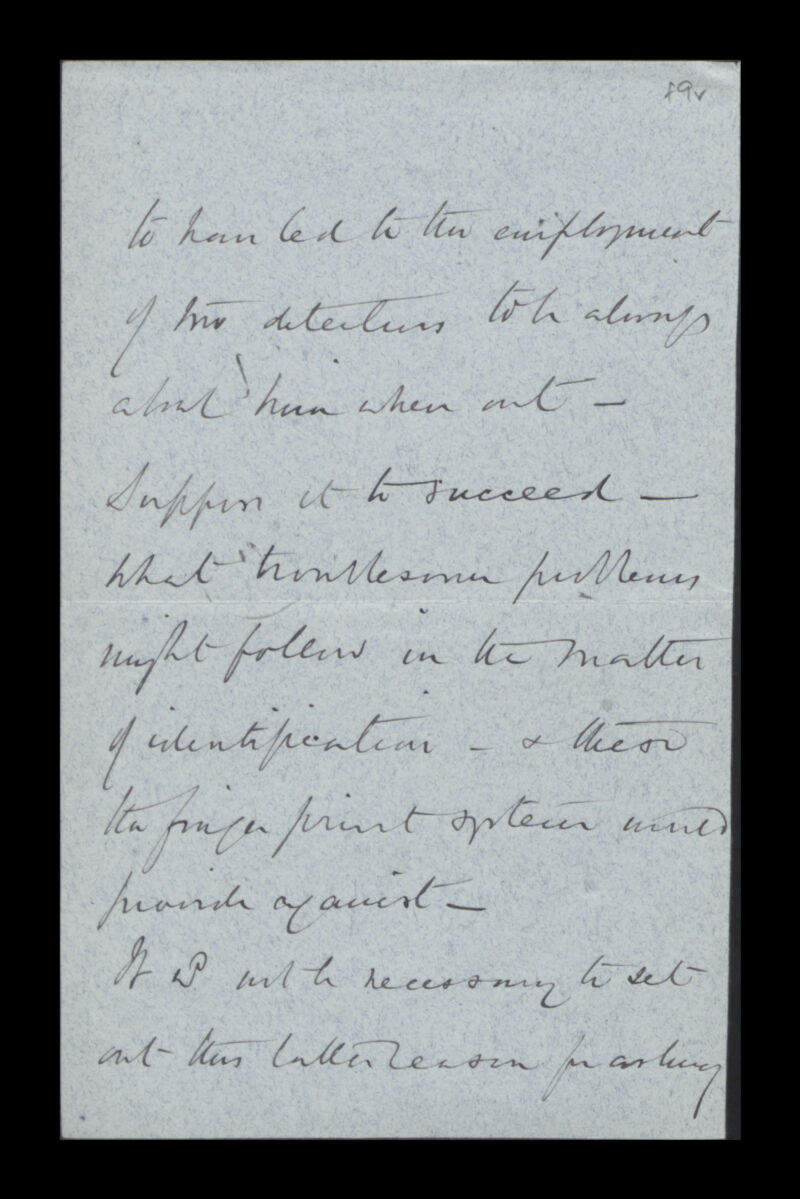 89v
to have led to the employment
of two detectives to be always
about him when out —
Suppose it to succeed —
what troublesome problems
might follow in the matter
of identification — & these
the finger print system would
provide against —
It wd not be necessary to set
out this latter reason for asking